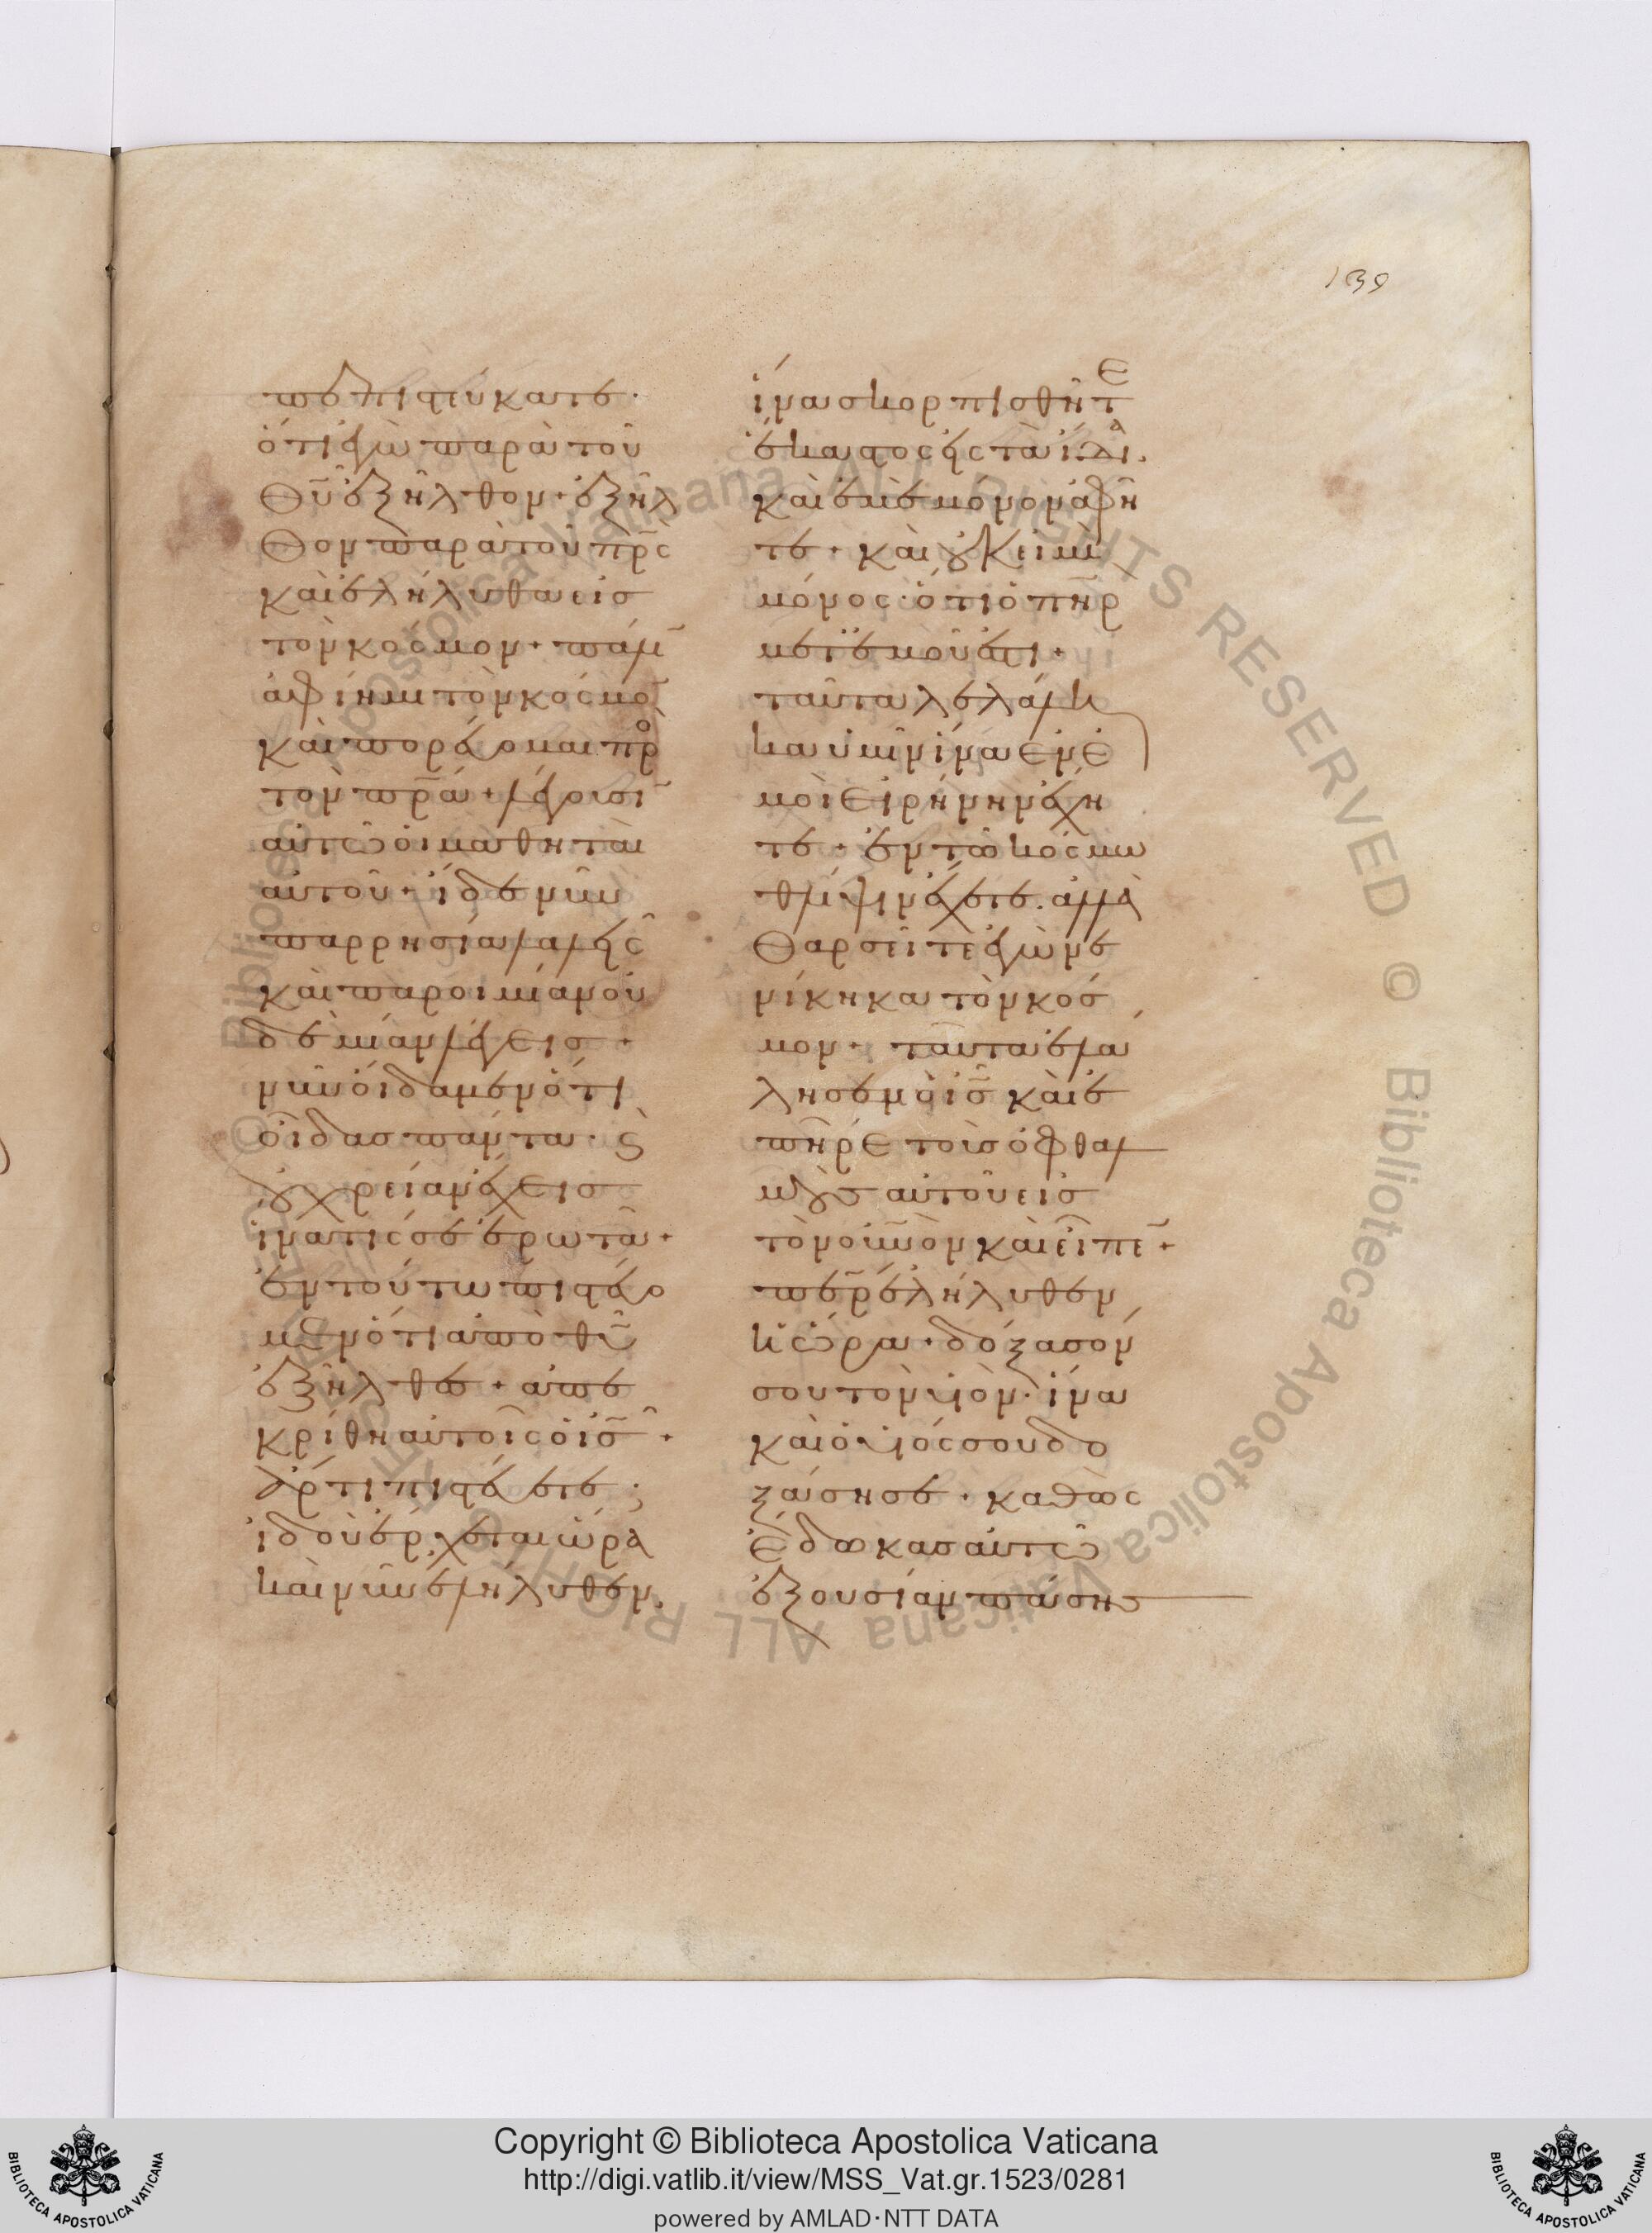 139
πεπιστεύκατε·
ὅτι ἐγὼ παρὰ τοῦ
Θῦ ἐξῆλθον· ἐξῆλ
Θον παρὰ τοῦ πρ̅ς
καὶ ἐλήλυθα εἰσ
τὸν κόσμον· πάλι̅
ἀφίημι τὸν κόσμο̅
καὶ πορεύομαι προ
τὸν πρ̅α· λέγουσι̅
αὐτῶ οἱ μαθηταὶ
αὐτοῦ· ἴδε νῦν
παρρησία λαλεῖς
καὶ παροιμίαν οὐ
δεμίαν λέγεισ·
νῦν οἴδαμεν ὅτι
οἶδασ πάντα· ϛ
οὐ χρείαν ἔχεισ
ἵνα τίς σε ἐρωτᾶ·
ἐν τούτω πιστεύο
μεν ὅτι ἀπὸ θῦ
ἐξῆλθεσ· ἀπε
κρίθη αὐτοῖς ὁ ἰσ̅·
ἄρτι πιστεύετε;
ἰδοὺ ἔρχεται ὥρα
καὶ νῦν ἐλήλυθεν.
ἵνα σκορπισθῆτε
ἕκαστος εἰς τὰ ἴδια.
καὶ ἐμὲ μόνον ἀφῆ
τε· καὶ οὐκ εἰμὶ
μόνος· ὅτι ὁ πη̅ρ
μετ' ἐμοῦ ἐστι·
ταῦτα λελάλη
κα ὑμῖν ἵνα ἐν ἐ
μοὶ εἰρήνην ἔχη
τε· ἐν τῶ κόσμω
θλίψιν ἔχετε. ἀλλὰ
Θαρσεῖτε ἐγὼ νε
νίκηκα τὸν κόσ
μον· ταῦτα ἐλά
λησεν ὁ ἰσ̅ καὶ ἐ
πῆρε τοὺσ ὀφθαλ
μοὺσ αὐτοῦ εἰσ
τὸν οὐν̅ὸν καὶ εἶπε̅·
πε̅ρ ἐλήλυθεν
ἡ ὥρα· δόξασόν
σου τὸν υἱόν· ἵνα
καὶ ὁ υἱός σου δο
ξάσησε· καθὼς
ἔδωκασ αὐτῶ
ἐξουσίαν πάσησ
Copyright © Biblioteca Apostolica Vaticana
http://digi.vatlib.it/view/MSS_Vat.gr.1523/0281
powered by AMLAD·NTT DATA
BIBLIOTECA APOSTOLICA VATICANA
BIBLIOTECA APOSTOLICA VATICANA
© Biblioteca Apostolica Vaticana ALL RIGHTS RESERVED © Biblioteca Apostolica Vaticana ALL RIGHTS RESERVED